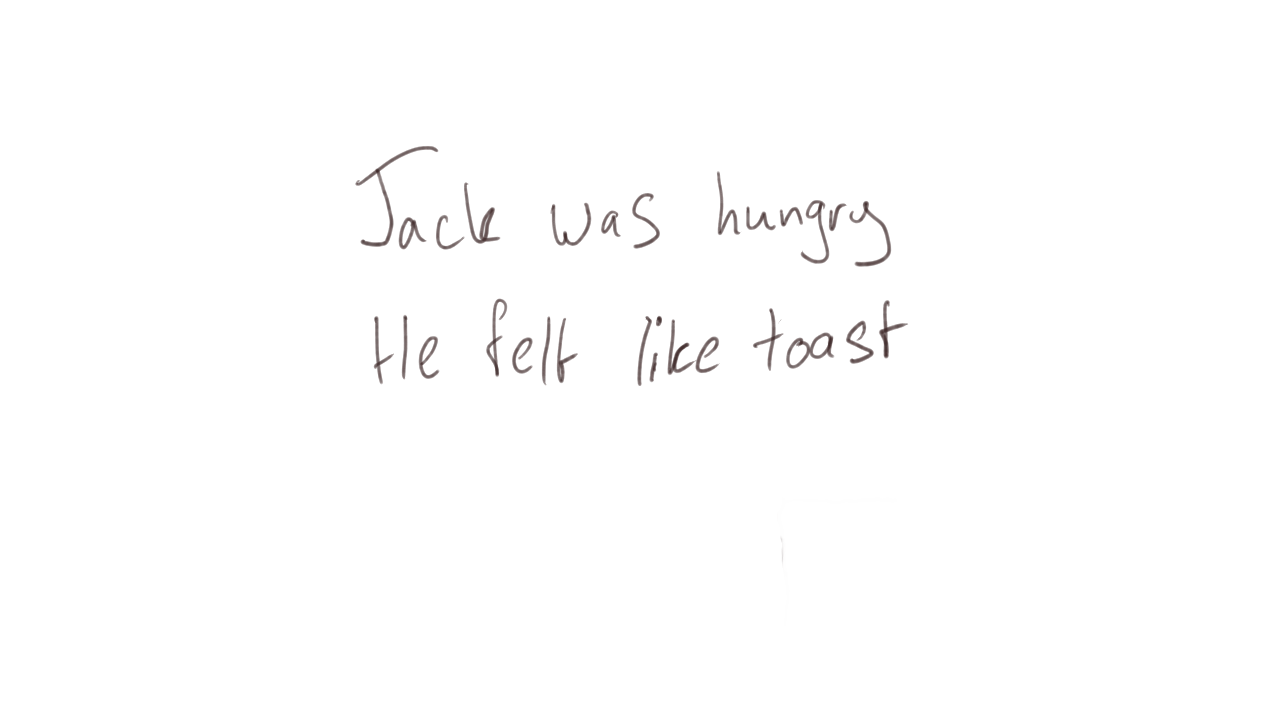 Jack was hungry
He felt like toast